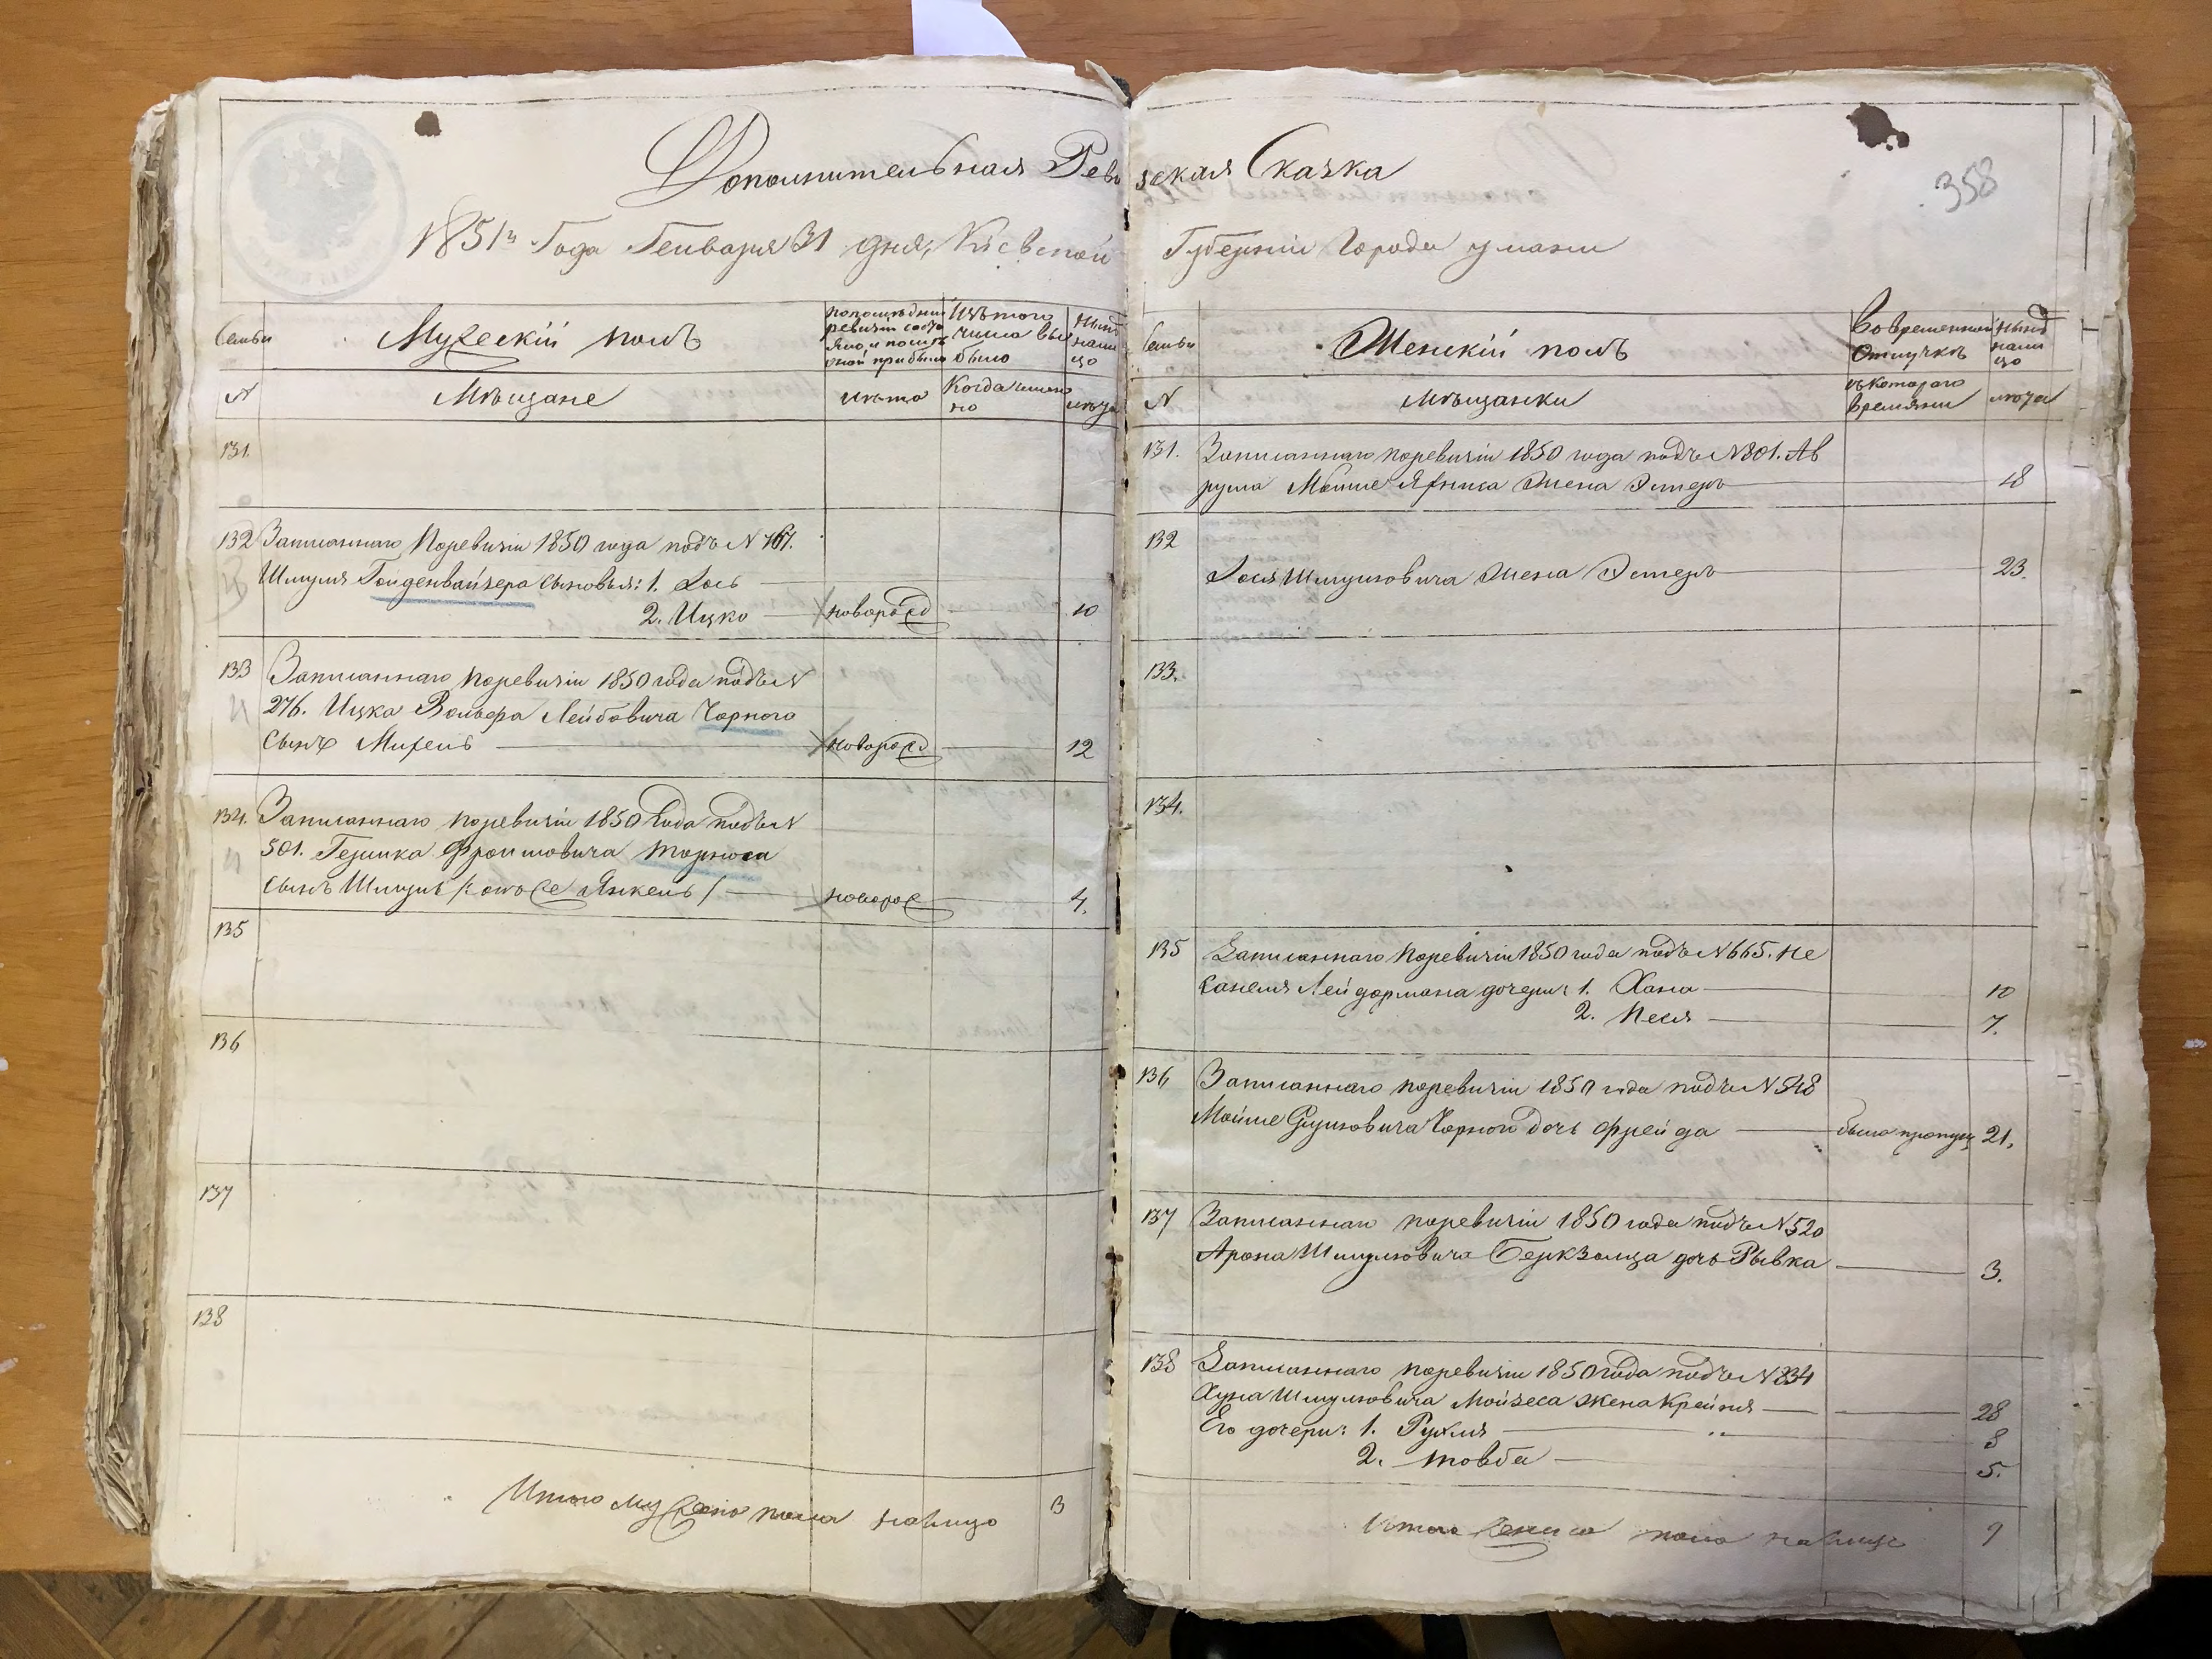 Дополнительная Ревизская Сказка
358
1851го Года Генваря 31 дня, Кіевской Губерніи Города Умани
Семьи
Мужескій полъ
По последней
ревизіи состо
яло и после
оной прибыло
Изъ того
числа вы
было
Ныне
на ли
цо
№
Мѣщане
лета
Когда именно
лета
131.
132 Записаннаго по ревизіи 1850 года подъ № 767.
Шмуля Голденвайзера сыновья: 1. Іось
2. Ицко — новорожд — 10
133 Записаннаго по ревизіи 1850 года подъ №
276. Ицка Вольфа Лейбовича Чорного
сынъ Михель — новорожд — 12
134. Записаннаго по ревизіи 1850 года подъ №
501. Гершка Фроимовича
сынъ Шмуль /: онъ же Янкель / — новорож — 4.
135
136
137
138
Итого мужеска пола налицо 3
Семьи
Женскій полъ
Во временной
отлучкѣ
Ныне
на ли
цо
№
Мѣщанки
съ котораго
времяни
лета
131. Записаннаго по ревизіи 1850 года подъ № 801. Ав
рума Мойше жена Эстеръ — 18
132
Іося Шмулювича жена Эстеръ — 23.
133.
134.
135 Записаннаго по ревизіи 1850 года подъ № 665. Не
Лейдермана дочери: 1. Хана — 10
2. Песя — 7.
136 Записаннаго по ревизіи 1850 года подъ № 548
Мойше Чорного дочь Фрейда — была пропущ 21.
137 Записаннаго по ревизіи 1850 года подъ № 520
Арона Шмулювича дочь Рывка — 3.
138 Записаннаго по ревизіи 1850 года подъ № 834
Шмулювича Мойзеса жена Крейня — 28
Его дочери: 1. Рухля — 8
2. Товба — 5.
Итого женска пола налицо 9